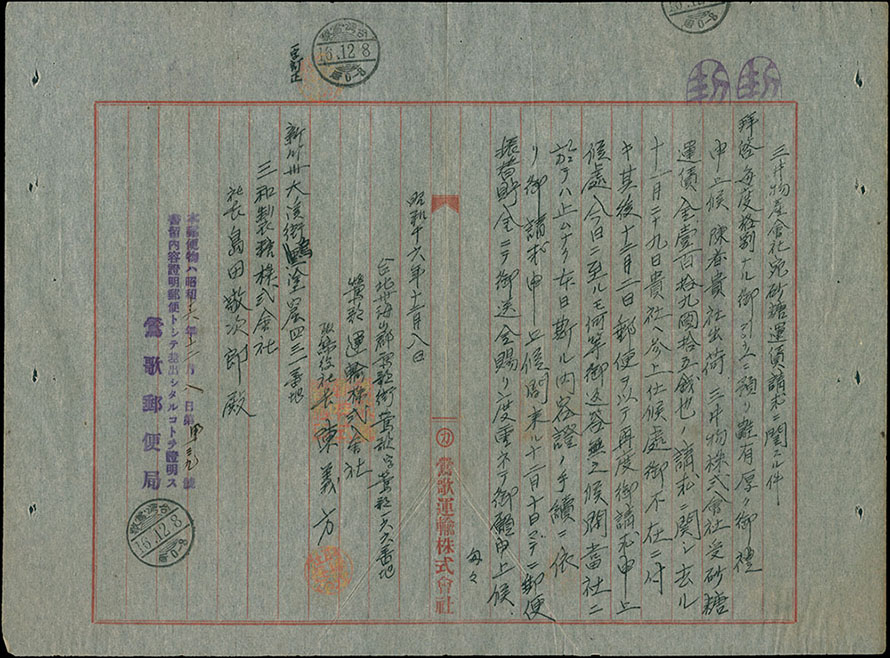 三井物産會社宛砂糖運賃請求ニ関スル件
拝啓毎度格別ナル御
ニ預リ難有厚ク御禮
申上候陳者貴社出荷三井物株式會社受砂糖
運賃金壹百拾九圓拾五銭也ノ請求ニ関シ去ル
十一月二十九日貴社ヘ参上仕候處御不在ニ付
キ其後十二月二日郵便ヲ以テ再度御請求申上
候處今日ニ至ルモ何等御送答無之候間當社ニ
於テハ止ムナク本日斯ル内容證ノ手續ニ依
リ御請求申上候間来ル十二月十日マデニ郵便
振替貯金ニテ御送金賜リ度重ネテ御願申上候
匆々
昭和十六年十二月八日
台北州海山郡鶯歌街鶯歌字鶯歌一六六番地
鶯歌運輸株式會社
取締役社長 陳義方
新竹州大溪街
窟四三一番地
三和製糖株式會社
社長島田敬次郎殿
本郵便物ハ昭和十六年十二月八日第
號
書留内容證明郵便トシテ差出シタルコトヲ證明ス
鶯歌郵便局
カ 鶯歌運輸株式會社
16.12.8
后0-8
16.12.8
后0-8
0-8